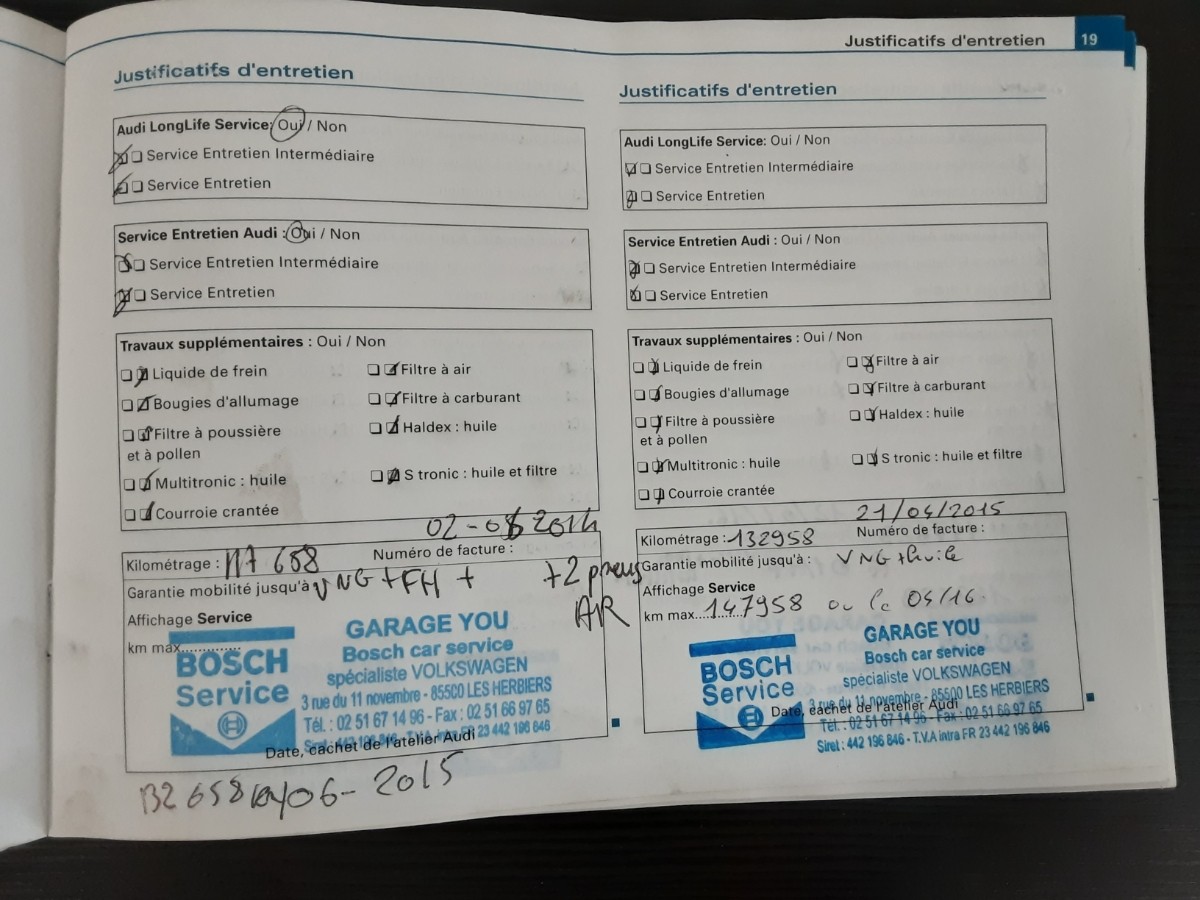 Justificatifs d'entretien 19
Justificatifs d'entretien
Audi LongLife Service: Oui / Non
Service Entretien Intermédiaire
Service Entretien
Service Entretien Audi : Oui / Non
Service Entretien Intermédiaire
Service Entretien
Travaux supplémentaires : Oui / Non
Liquide de frein
Filtre à air
Bougies d'allumage
Filtre à carburant
Filtre à poussière
et à pollen
Haldex : huile
Multitronic : huile
S tronic : huile et filtre
Courroie crantée
2014
Kilométrage : 117 658
Numéro de facture :
Garantie mobilité jusqu'à VNG + FH + + 2 pneus
AR
Affichage Service
km max..............
BOSCH
Service
GARAGE YOU
Bosch car service
spécialiste VOLKSWAGEN
3 rue du 11 novembre - 85500 LES HERBIERS
Tél. : 02 51 67 14 96 - Fax : 02 51 66 97 65
Siret : 442 196 846 - T.V.A intra FR 23 442 196 846
Date, cachet de l'atelier Audi
06 - 2015
Justificatifs d'entretien
Audi LongLife Service: Oui / Non
Service Entretien Intermédiaire
Service Entretien
Service Entretien Audi : Oui / Non
Service Entretien Intermédiaire
Service Entretien
Travaux supplémentaires : Oui / Non
Liquide de frein
Filtre à air
Bougies d'allumage
Filtre à carburant
Filtre à poussière
et à pollen
Haldex : huile
Multitronic : huile
S tronic : huile et filtre
Courroie crantée
21/04/2015
Kilométrage : 132958
Numéro de facture :
Garantie mobilité jusqu'à : VNG + huile
Affichage Service
km max. 147958 ou le 04/16
BOSCH
Service
GARAGE YOU
Bosch car service
spécialiste VOLKSWAGEN
3 rue du 11 novembre - 85500 LES HERBIERS
Date, cachet de l'atelier Audi
Tél. : 02 51 67 14 96 - Fax : 02 51 66 97 65
Siret : 442 196 846 - T.V.A intra FR 23 442 196 846